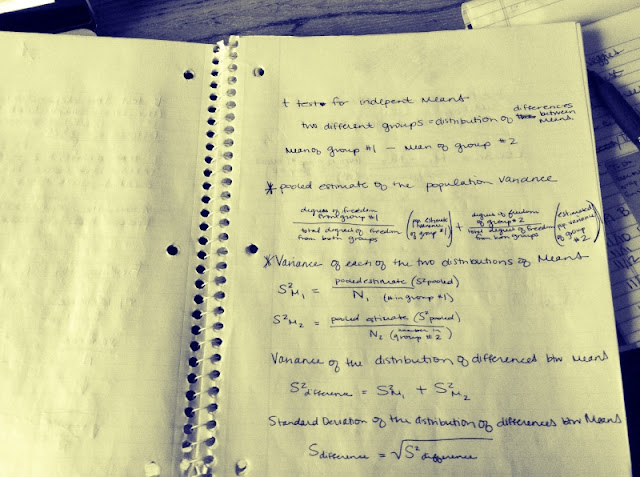 t test for indepent Means
two different groups = distribution of differences between Means.
Mean of group #1 - Mean of group #2
* pooled estimate of the population variance
degrees of freedom from group #1 / total degrees of freedom from both groups (pp. estimate variance of group #1) + degrees of freedom of group #2 / total degrees of freedom from both groups (estimated pp. variance of group #2)
* Variance of each of the two distributions of Means
S²M₁ = pooled estimate (S² pooled) / N₁ (# in group #1)
S²M₂ = pooled estimate (S² pooled) / N₂ (number in group #2)
Variance of the distribution of differences btw Means
S²difference = S²M₁ + S²M₂
Standard Deviation of the distribution of differences btw Means
Sdifference = √S²difference